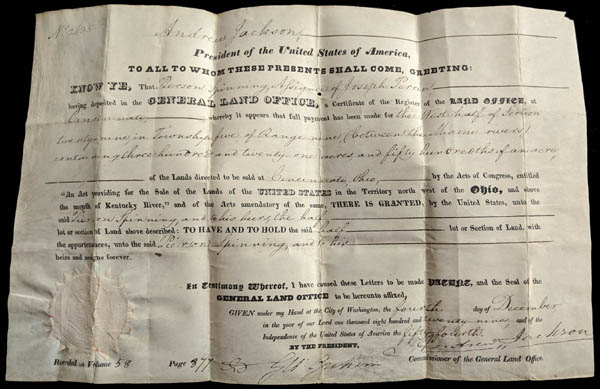 Andrew Jackson
President of the United States of America,
TO ALL TO WHOM THESE PRESENTS SHALL COME, GREETING:
KNOW YE, That Pierson Spinning, Assignee of Joseph
having deposited in the GENERAL LAND OFFICE, a Certificate of the Register of the LAND OFFICE, at
Cincinnati, whereby it appears that full payment has been made for the West half of Section
twenty-nine in Township five of Range nine, (between the Miami rivers)
containing three hundred and twenty-one acres and fifty hundredths of an acre,
of the Lands directed to be sold at Cincinnati Ohio, by the Acts of Congress, entitled
"An Act providing for the Sale of the Lands of the UNITED STATES in the Territory north west of the Ohio, and above
the mouth of Kentucky River," and of the Acts amendatory of the same, THERE IS GRANTED, by the United States, unto the
said Pierson Spinning, and to his heirs, the half
lot or section of Land above described: TO HAVE AND TO HOLD the said half lot or Section of Land, with
the appurtenances, unto the said Pierson Spinning, and to his
heirs and assigns forever.
In Testimony Whereof, I have caused these Letters to be made PATENT, and the Seal of the
GENERAL LAND OFFICE to be hereunto affixed,
GIVEN under my Hand at the City of Washington, the fourth day of December
in the year of our Lord one thousand eight hundred and twenty nine, and of the
Independence of the United States of America the fifty fourth.
BY THE PRESIDENT, Andrew Jackson
Recorded in Volume 58 Page 377 Commissioner of the General Land Office.